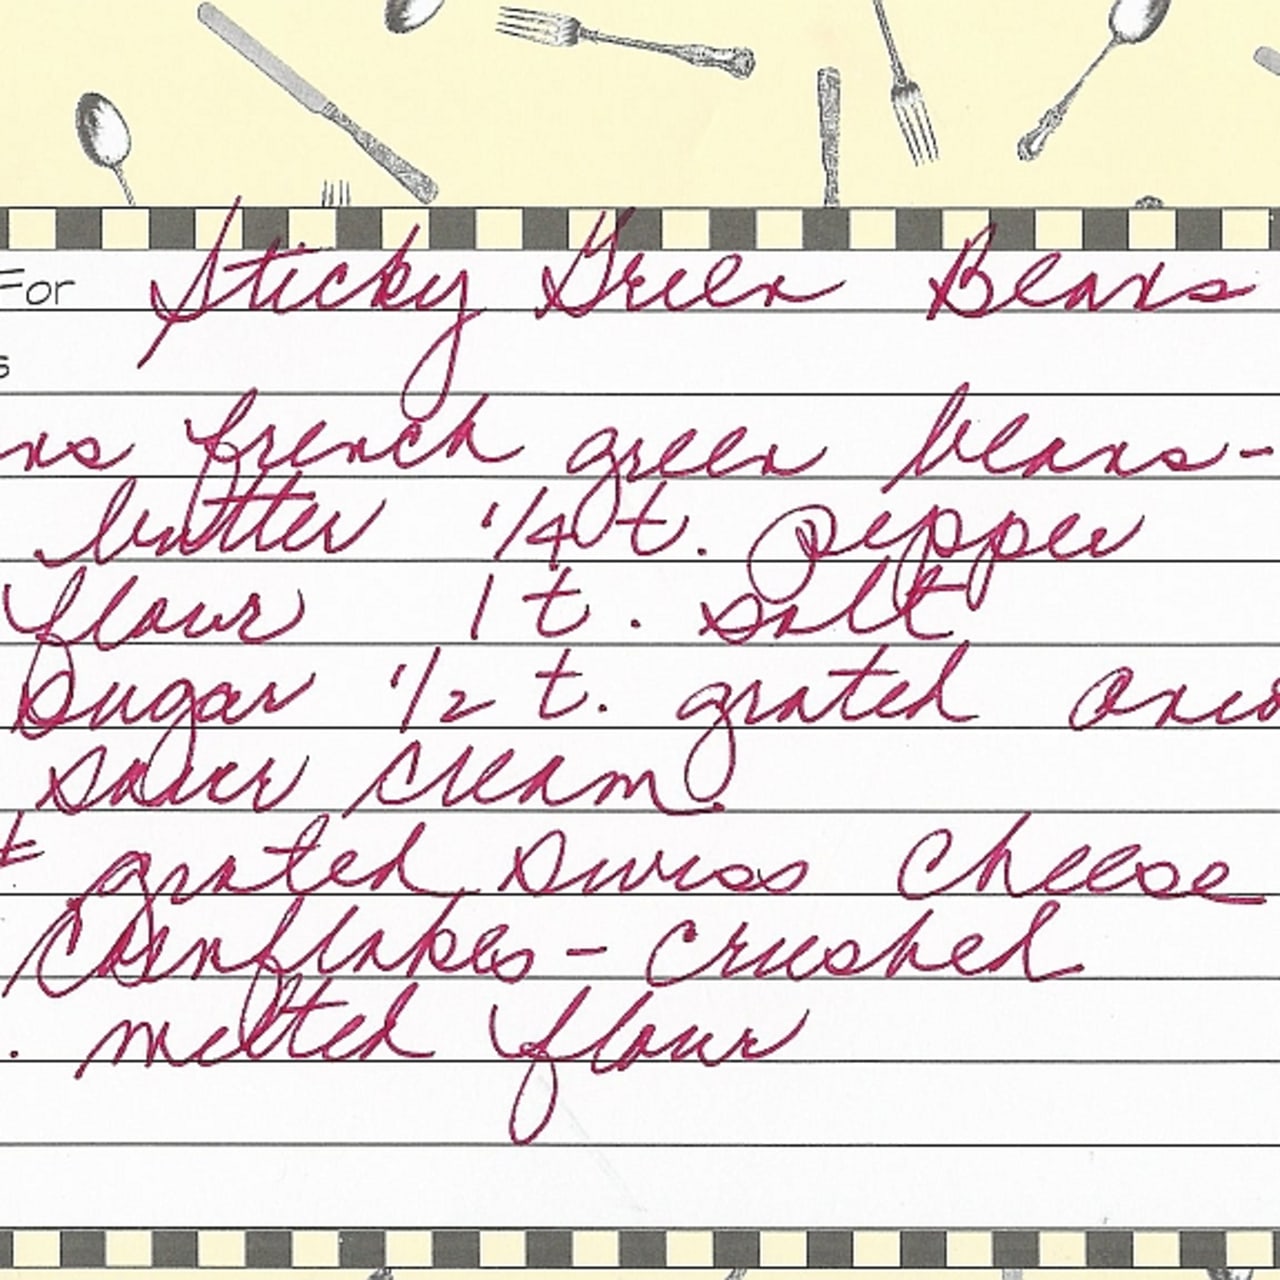 For Sticky Green Beans
s
ns french green beans-
butter 1/4 t. pepper
flour 1 t. salt
Sugar 1/2 t. grated onio
sour cream.
grated swiss cheese
Cornflakes - crushed
. melted flour